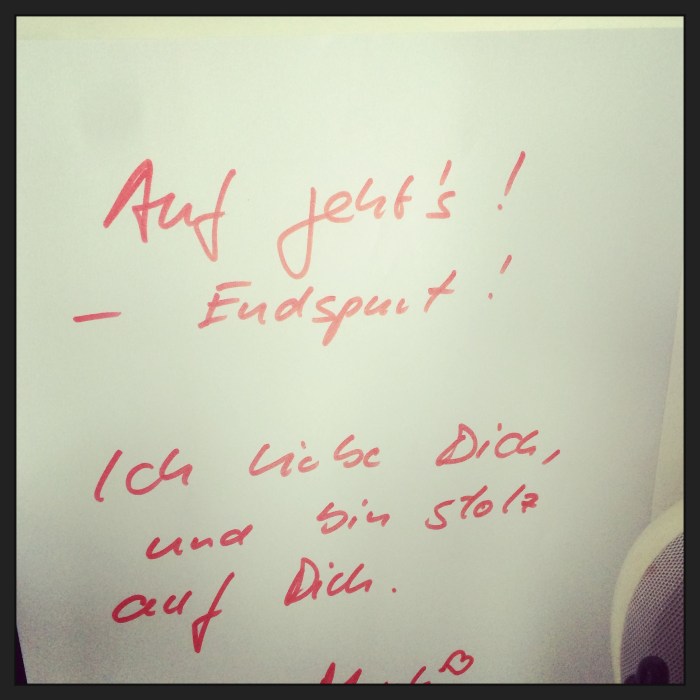 Auf geht's!
- Endspurt!
Ich liebe Dich,
und bin stolz
auf Dich.